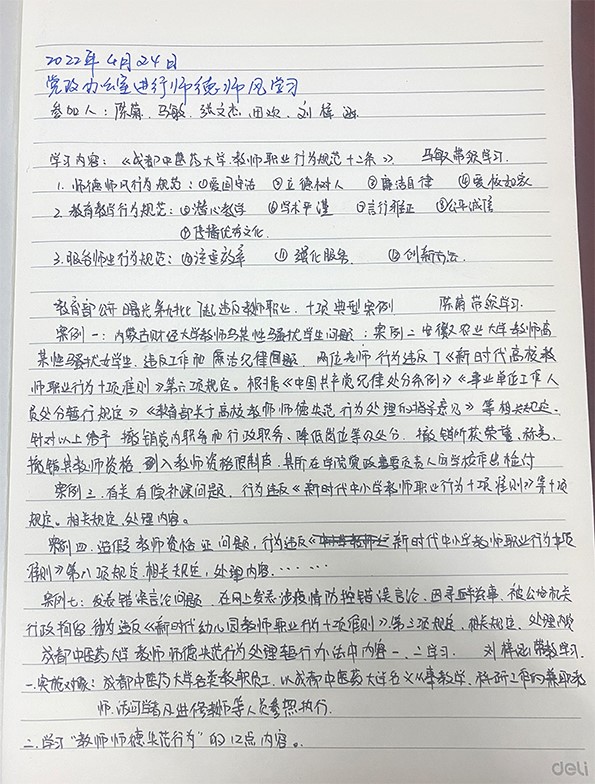 2022年4月24日
党政办公室进行师德师风学习
参加人：陈蕾、马敏、张文杰、田欢、刘梓涵
学习内容：《成都中医药大学教师职业行为规范十二条》 马敏带领学习.
1. 师德师风行为规范：①爱国守法 ②立德树人 ③廉洁自律 ④爱校如家
2. 教育教学行为规范：⑤潜心教学 ⑥学术严谨 ⑦言行雅正 ⑧公平诚信
⑨传播优秀文化.
3. 服务师生行为规范：⑩注重效率 ⑪强化服务. ⑫创新方法.
教育部公开曝光第九批7起违反教师职业、十项典型案例 陈蕾带领学习.
案例一：内蒙古财经大学教师马某性骚扰学生问题；案例二 安徽农业大学教师高
某性骚扰女学生、违反工作和廉洁纪律问题、两位老师行为违反了《新时代高校教
师职业行为十项准则》第六项规定。根据《中国共产党纪律处分条例》《事业单位工作人
员处分暂行规定》《教育部关于高校教师师德失范行为处理的指导意见》等相关规定.
针对以上给予 撤销党内职务和行政职务、降低岗位等级处分，撤销所获荣誉、称号、
撤销其教师资格，列入教师资格限制库，其所在学院党政主要负责人向学校作出检讨
案例三、有关有偿补课问题、行为违反《新时代中小学教师职业行为十项准则》第十项
规定。相关规定、处理内容。
案例四、造假教师资格证问题，行为违反《新时代中小学教师职业行为十项
准则》第八项规定.相关规定，处理内容. ……
案例七：发表错误言论问题、在网上发表涉疫情防控错误言论、因寻衅滋事、被公安机关
行政拘留 行为违反《新时代幼儿园教师职业行为十项准则》第三项规定、相关规定、处理内容
成都中医药大学教师师德失范行为处理暂行办法中内容一、二学习. 刘梓涵带教学习.
一.实施对象：成都中医药大学各类教职员工.以成都中医药大学名义从事教学、科研工作的兼职教
师.访问学者及进修教师等人员参照执行.
二、学习"教师师德失范行为"的12点内容。
deli